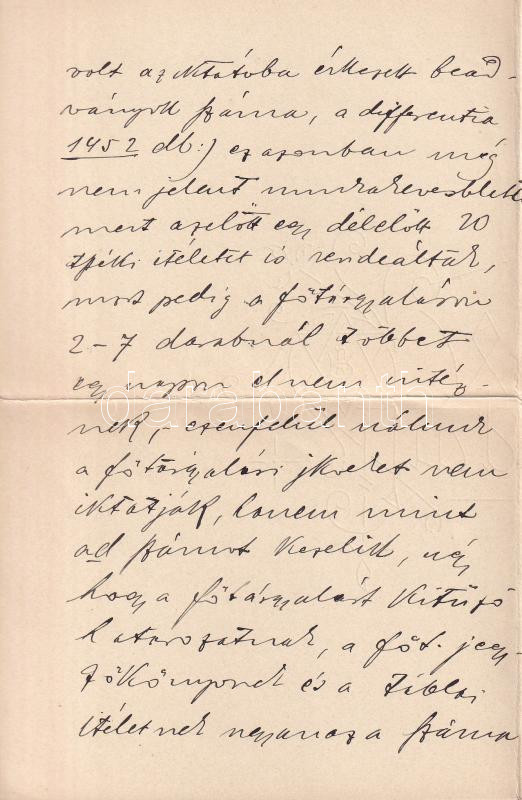 volt az iktatóba érkezett bead-
ványok száma, a differentia
1452 db:) ez azonban még
nem jelent munkakevesbletet
mert azelőtt egy délelőtt 20
itéletet is rendeáltak,
most pedig a főtárgyaláson
2-7 darabnál többet
egy napon el nem intéz-
nek, ezenfelül nálunk
a főtárgyalási jkveket nem
iktatják, hanem mint
ad számot kezelik, úgy
hogy a főtárgyalást kitűző
határozatnak, a főt. jegy-
zőkönyvnek és a táblai
itéletnek ugyanaz a száma
darabanth